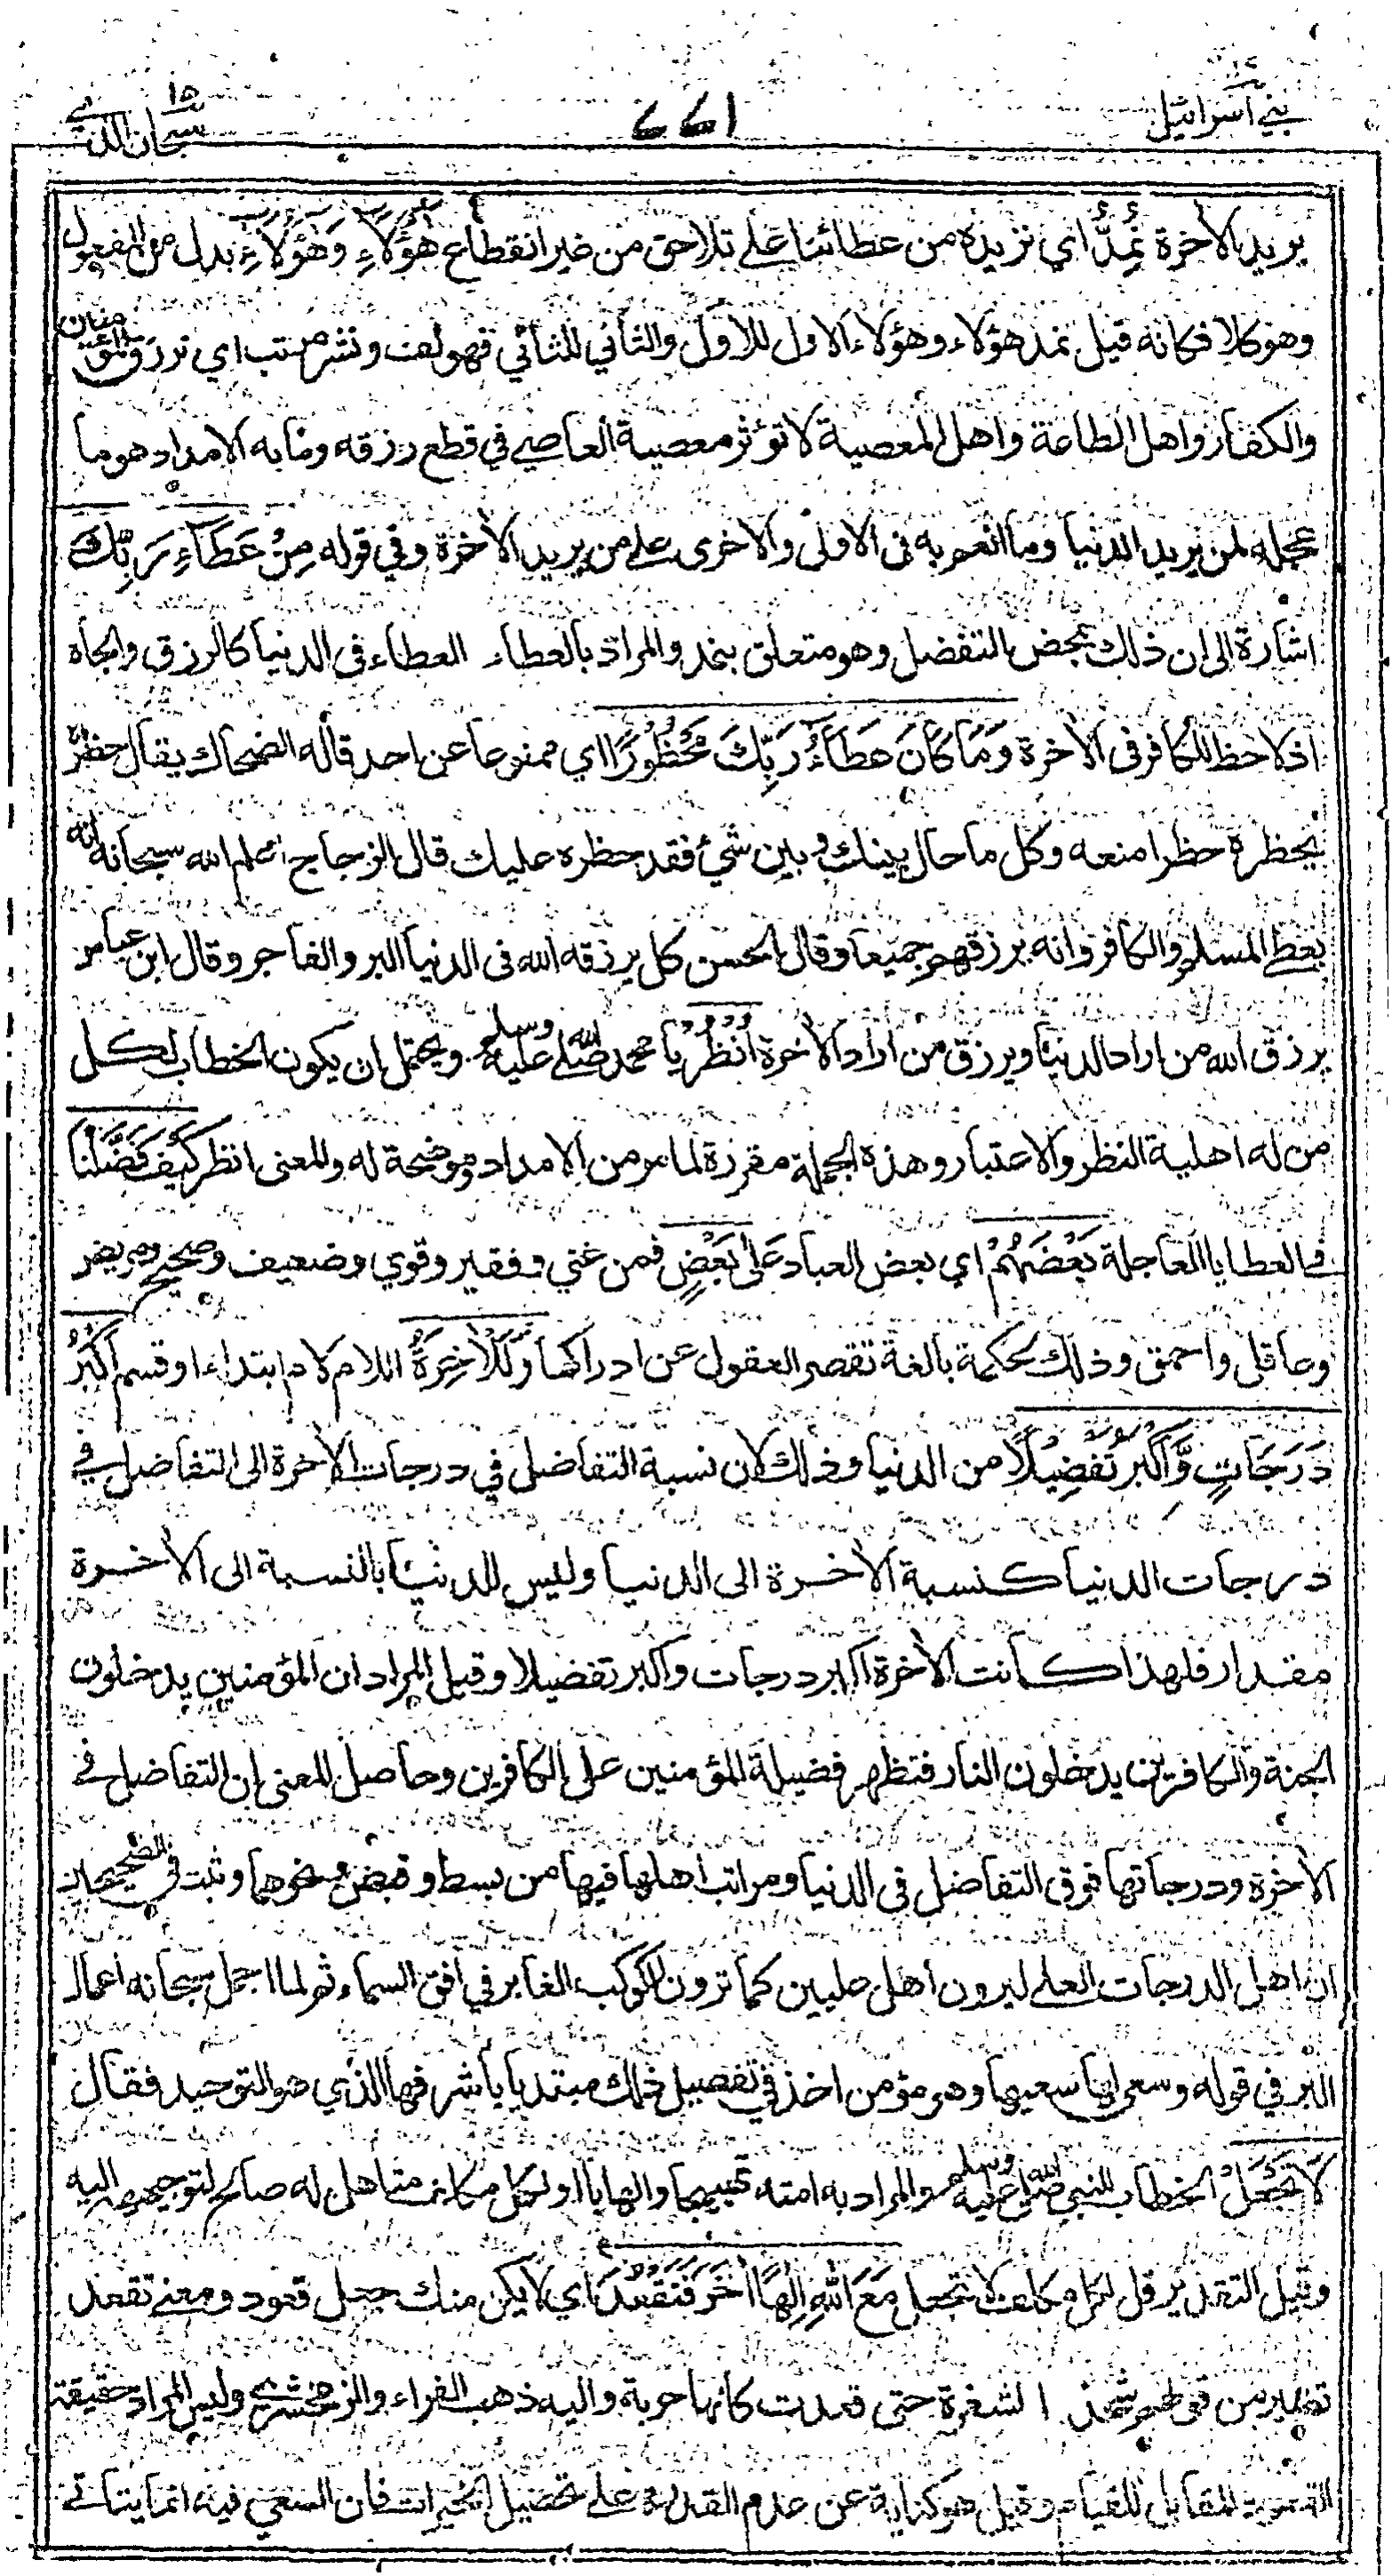 بني اسرائيل
١٦٦١
سبحان الذي ١٥
يريد الاخرة نُّمِدُّ اي نزيده من عطائنا على تلاحق من غير انقطاع هٰؤُلَاءِ وَهٰؤُلَاءِ بدل من المفعول
وهو كلا فكانه قيل نمد هؤلاء وهؤلاء الاول للاول والثاني للثاني فهو لف ونشر مرتب اي نرزق المؤمنين
والكفار واهل الطاعة واهل المعصية لا تؤثر معصية العاصي في قطع رزقه وما به الامداد هو ما
عجله لمن يريد الدنيا وما انعم به في الاولى والاخرى على من يريد الاخرة وفي قوله مِنْ عَطَاءِ رَبِّكَ
اشارة الى ان ذلك بمحض التفضل وهو متعلق بنمد والمراد بالعطاء العطاء في الدنيا كالرزق والجاه
اذ لا حظ للكافر في الاخرة وَمَا كَانَ عَطَاءُ رَبِّكَ مَحْظُورًا اي ممنوعا عن احد قاله الضحاك يقال حظره
يحظره حظرا منعه وكل ما حال بينك وبين شيء فقد حظره عليك قال الزجاج اعلم الله سبحانه انه
يعطي المسلم والكافر وانه يرزقهم جميعا وقال الحسن كل يرزقه الله في الدنيا البر والفاجر وقال ابن عباس
يرزق الله من اراد الدنيا ويرزق من اراد الاخرة اُنْظُرْ يا محمد صلى الله عليه وسلم ويحتمل ان يكون الخطاب لكل
من له اهلية النظر والاعتبار وهذه الجملة مقررة لما مر من الامداد وموضحة له والمعنى انظر كَيْفَ فَضَّلْنَا
في العطايا العاجلة بَعْضَهُمْ اي بعض العباد عَلٰى بَعْضٍ فمن غني وفقير وقوي وضعيف وصحيح ومريض
وعاقل واحمق وذلك لحكمة بالغة تقصر العقول عن ادراكها وَلَلْاٰخِرَةُ اللام لام ابتداء او قسم اَكْبَرُ
دَرَجَاتٍ وَّاَكْبَرُ تَفْضِيْلًا من الدنيا وذلك لان نسبة التفاضل في درجات الاخرة الى التفاضل في
درجات الدنيا كنسبة الاخرة الى الدنيا وليس للدنيا بالنسبة الى الاخرة
مقدار فلهذا كانت الاخرة اكبر درجات واكبر تفضيلا وقيل المراد ان المؤمنين يدخلون
الجنة والكافرين يدخلون النار فتظهر فضيلة المؤمنين على الكافرين وحاصل المعنى ان التفاضل في
الاخرة ودرجاتها فوق التفاضل في الدنيا ومراتب اهلها فيها من بسط وقبض ونحوهما وثبت في الصحيحين
ان اهل الدرجات العلى ليرون اهل عليين كما ترون الكوكب الغابر في افق السماء ثم لما اجمل سبحانه اعمال
البر في قوله وسعى لها سعيها وهو مؤمن اخذ في تفصيل ذلك مبتديا باشرفها الذي هو التوحيد فقال
لَا تَجْعَلْ الخطاب للنبي صلى الله عليه وسلم والمراد به امته تهييجا والهابا او لكل متاهل له صالح لتوجيهه اليه
وقيل التقدير قل لكل مكلف لا تجعل مَعَ اللهِ اِلٰهًا اٰخَرَ فَتَقْعُدَ اي لا يكن منك جعل فقعود ومعنى تقعد
تصير من قولهم شحذ الشفرة حتى قعدت كانها حربة واليه ذهب الفراء والزمخشري وليس المراد حقيقة
القعود المقابل للقيام وقيل هو كناية عن عدم القدرة على تحصيل الخيرات فان السعي فيه انما يتاتى